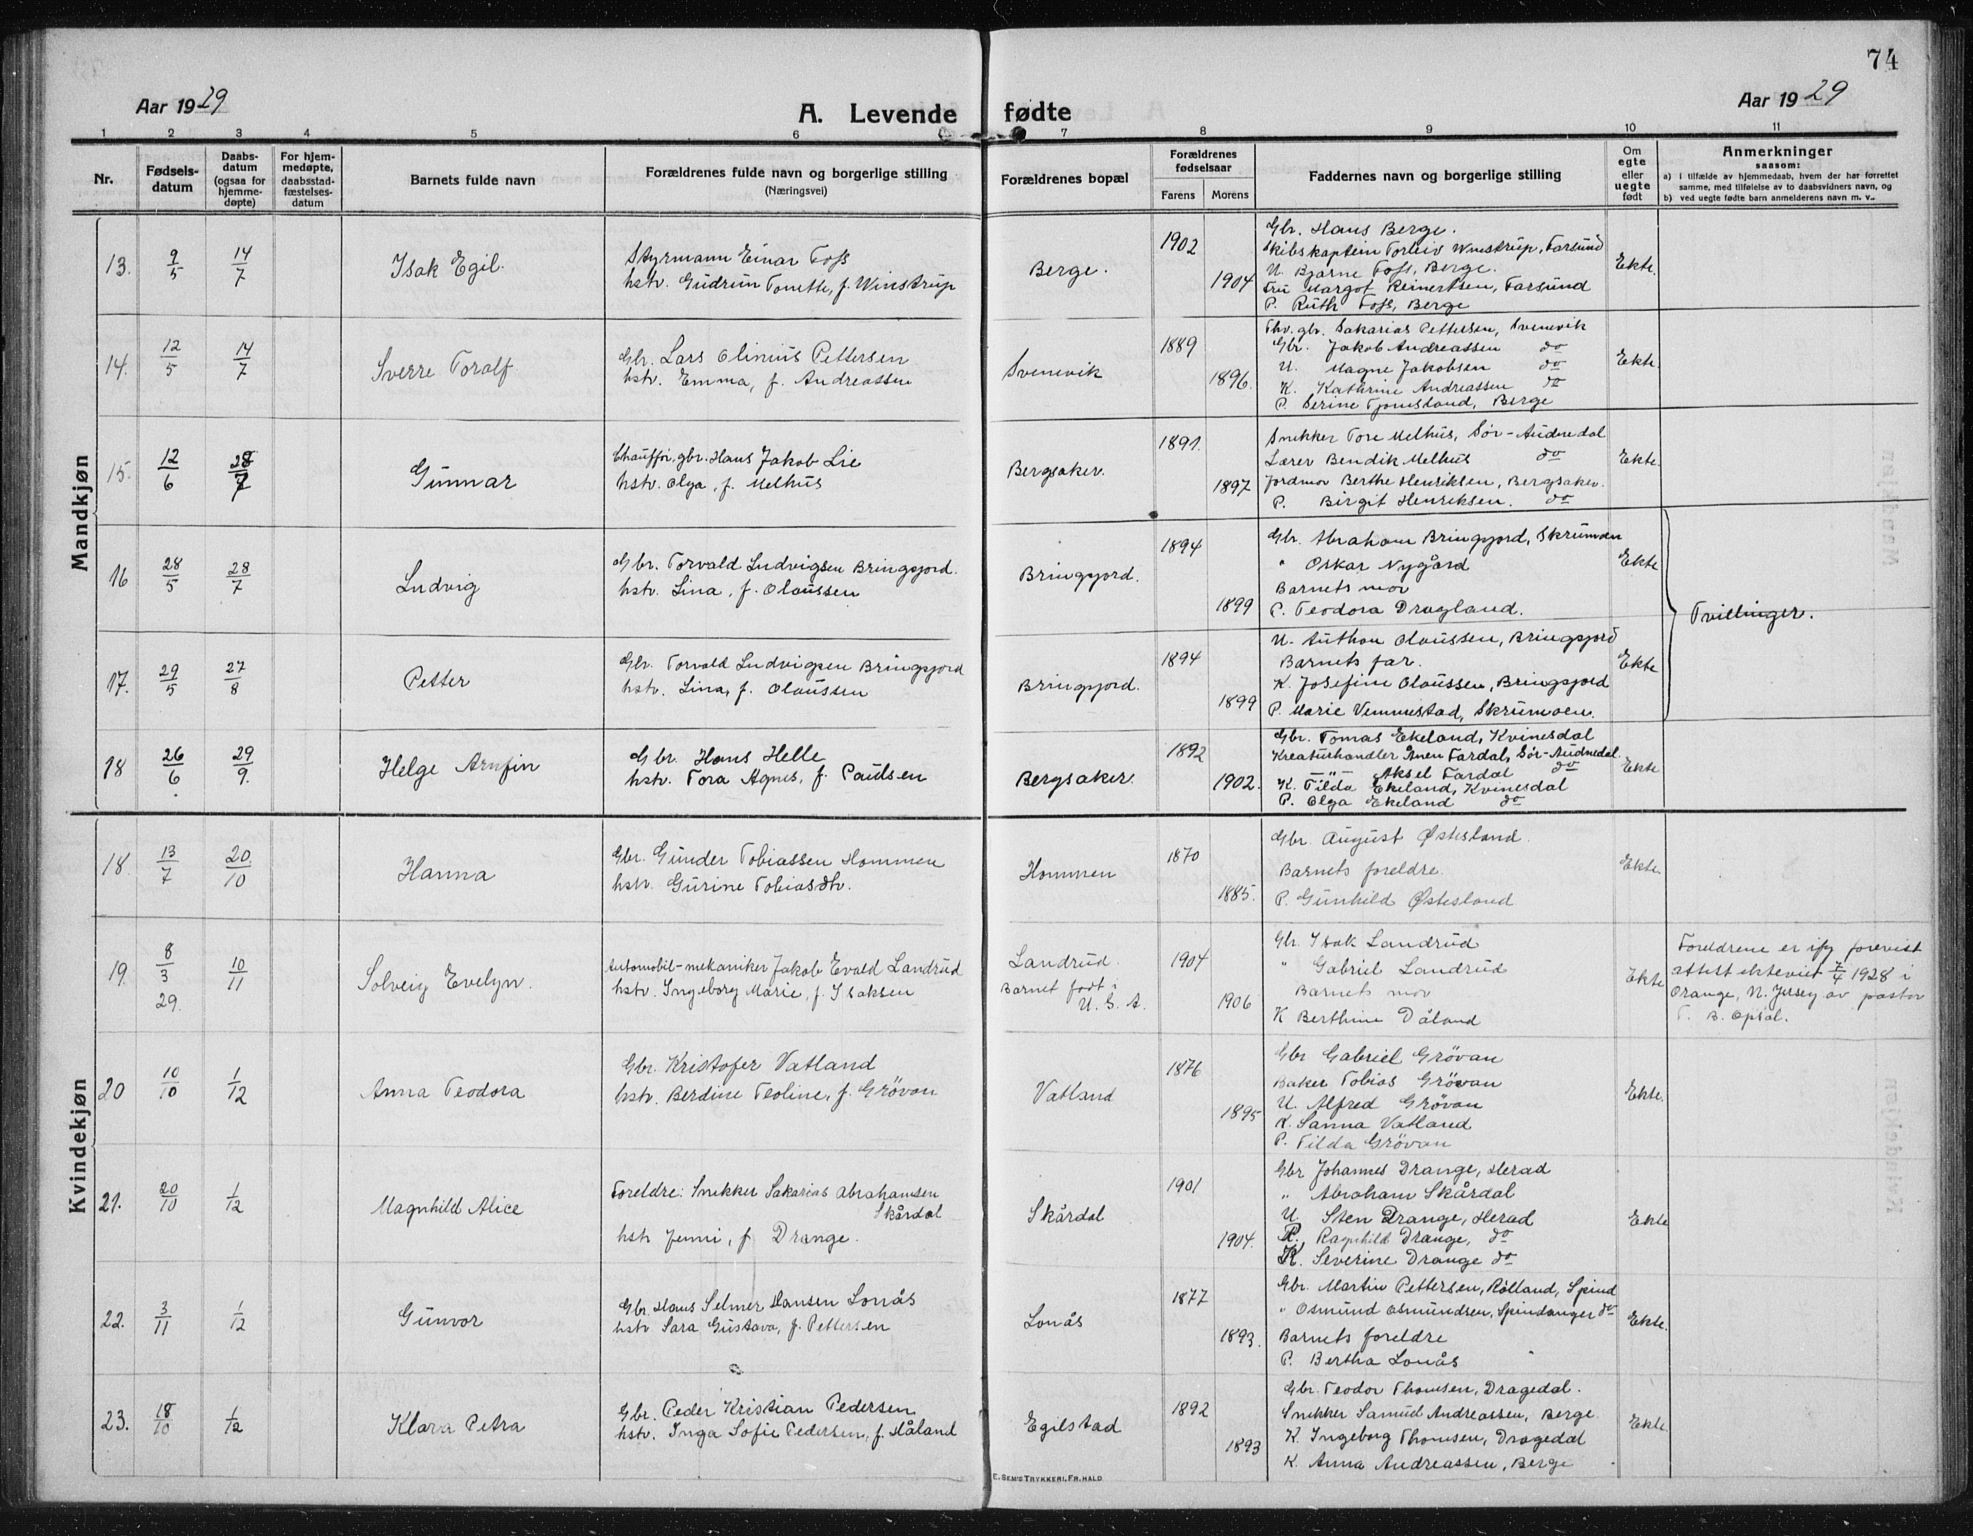 74
Aar 1929
A. Levende fødte
Aar 1929
1 2 3 4 5 6 7 8 9 10 11
Nr.
Fødsels-
datum
Daabs-
datum
(ogsaa for
hjemme-
døpte)
For hjem-
medøpte,
daabsstad-
fæstelses-
datum
Barnets fulde navn
Forældrenes fulde navn og borgerlige stilling
(Næringsvei)
Forældrenes bopæl
Forældrenes
fødselsaar
Farens Morens
Faddernes navn og borgerlige stilling
Om
egte
eller
uegte
født
Anmerkninger
saasom:
a) i tilfælde av hjemmedaab, hvem der har forrettet
samme, med tilføielse av to daabsvidners navn, og
b) ved uegte fødte barn anmelderens navn m. v..
Mandkjøn
13. 9/5 14/7 Isak Egil.
Styrmann Einar Foss
hstr. Gudrun Tonette, f. Winstrup
Berge.
1902
1904
Gbr. Hans Berge.
Skibskaptein Torleiv Winstrup, Farsund
U. Bjarne Foss, Berge.
Fru Margot Reinertsen, Farsund
P. Ruth Foss, Berge
Ekte.
14. 12/5 14/7 Sverre Toralf
Gbr. Lars Olinius Pettersen
hstr. Emma, f. Andreassen
Svenevik
1889
1896.
Fhv. gbr. Sakarias Pettersen, Svenevik
Gbr. Jakob Andreassen do
U. Magne Jakobsen do
K. Kathrine Andreassen do
P. Serine Tjomsland, Berge
Ekte.
15. 12/6 28/7 Gunnar
Chauffør, gbr. Hans Jakob Lie
hstr. Olga, f. Melhus
Bergsaker.
1891.
1897
Snekker Tore Melhus, Sør-Audnedal
Lærer Bendik Melhus do
Jordmor Berthe Henriksen, Bergsaker.
P. Birgit Henriksen. do
Ekte.
16 28/5 28/7 Ludvig
Gbr. Torvald Ludvigsen Bringsjord.
hstr. Lina, f. Olaussen
Bringsjord.
1894
1899
Gbr. Abraham Bringsjord, Skrumoen
" Oskar Nygård
Barnets mor
P. Teodora Dragland.
Ekte
Tvillinger.
17. 29/5 27/8 Petter
Gbr. Torvald Ludvigsen Bringsjord
hstr. Lina, f. Olaussen
Bringsjord.
1894
1899
U. Anthon Olaussen, Bringsjord
Barnets far.
K. Josefine Olaussen, Bringsjord
P. Marie Vemmestad, Skrumoen.
Ekte
18 26/6 29/9. Helge Arnfin
Gbr. Hans Helle
hstr. Tora Agnes, f. Paulsen
Bergsaker.
1892
1902.
Gbr. Tomas Ekeland, Kvinesdal
Kreaturhandler Anen Fardal, Sør-Audnedal.
— " — Aksel Fardal do
K. Tilda Ekeland, Kvinesdal
P. Olga Ekeland do
Ekte
Kvindekjøn
18. 13/7 20/10 Hanna
Gbr. Gunder Tobiassen Hommen
hstr. Gurine Tobiasdtr.
Hommen
1870
1885.
Gbr. August Østesland.
Barnets foreldre.
P. Gunhild Østesland
Ekte.
19. 8/3 29. 10/11 Solveig Evelyn.
Automobil-mekaniker Jakob Evald Landrud
hstr. Ingeborg Marie, f. Isaksen
Landrud.
Barnet født i
U. S. A.
1904
1906
Gbr. Isak Landrud
" Gabriel Landrud
Barnets mor
K Berthine Dåland
Ekte
Foreldrene er ifg forevist
attest ekteviet 7/4 1928 i
Orange, N. Jersey av pastor
T. B. Opsal.
20 10/10 1/12 Anna Teodora
Gbr. Kristofer Vatland
hstr. Berdine Teoline, f. Grövan
Vatland
1876
1895
Gbr Gabriel Grövan
Baker Tobias Grövan
U. Alfred Grövan
K. Sanna Vatland
P. Tilda Grövan
Ekte.
21. 20/10 1/12 Magnhild Alice
Foreldre: Snekker Sakarias Abrahamsen
Skårdal
hstr Jenni, f Drange.
Skårdal
1901
1904.
Gbr Johannes Drange, Herad
" Abraham Skårdal
U. Sten Drange, Herad
P. Ragnhild Drange, do
K. Severine Drange do
Ekte
22. 3/11 1/12 Gunvor
Gbr. Hans Selmer Hansen Lonås
hstr Sara Gustava, f. Pettersen
Lonås
1877
1893.
Gbr. Martin Pettersen, Rölland, Spind
" Osmund Osmundsen, Spindanger do
Barnets foreldre
P. Bertha Lonås
Ekte.
23. 18/10 1/12 Klara Petra
Gbr. Peder Kristian Pedersen
hstr. Inga Sofie Pedersen, f. Håland
Egilstad
1892
1893
Gbr. Teodor Thomsen, Dragedal.
Snikker Samuel Andreassen, Berge
K. Ingeborg Thomsen, Dragedal
K. Anna Andreassen, Berge
Ekte.
E. SEM'S TRYKKERI, FR.HALD